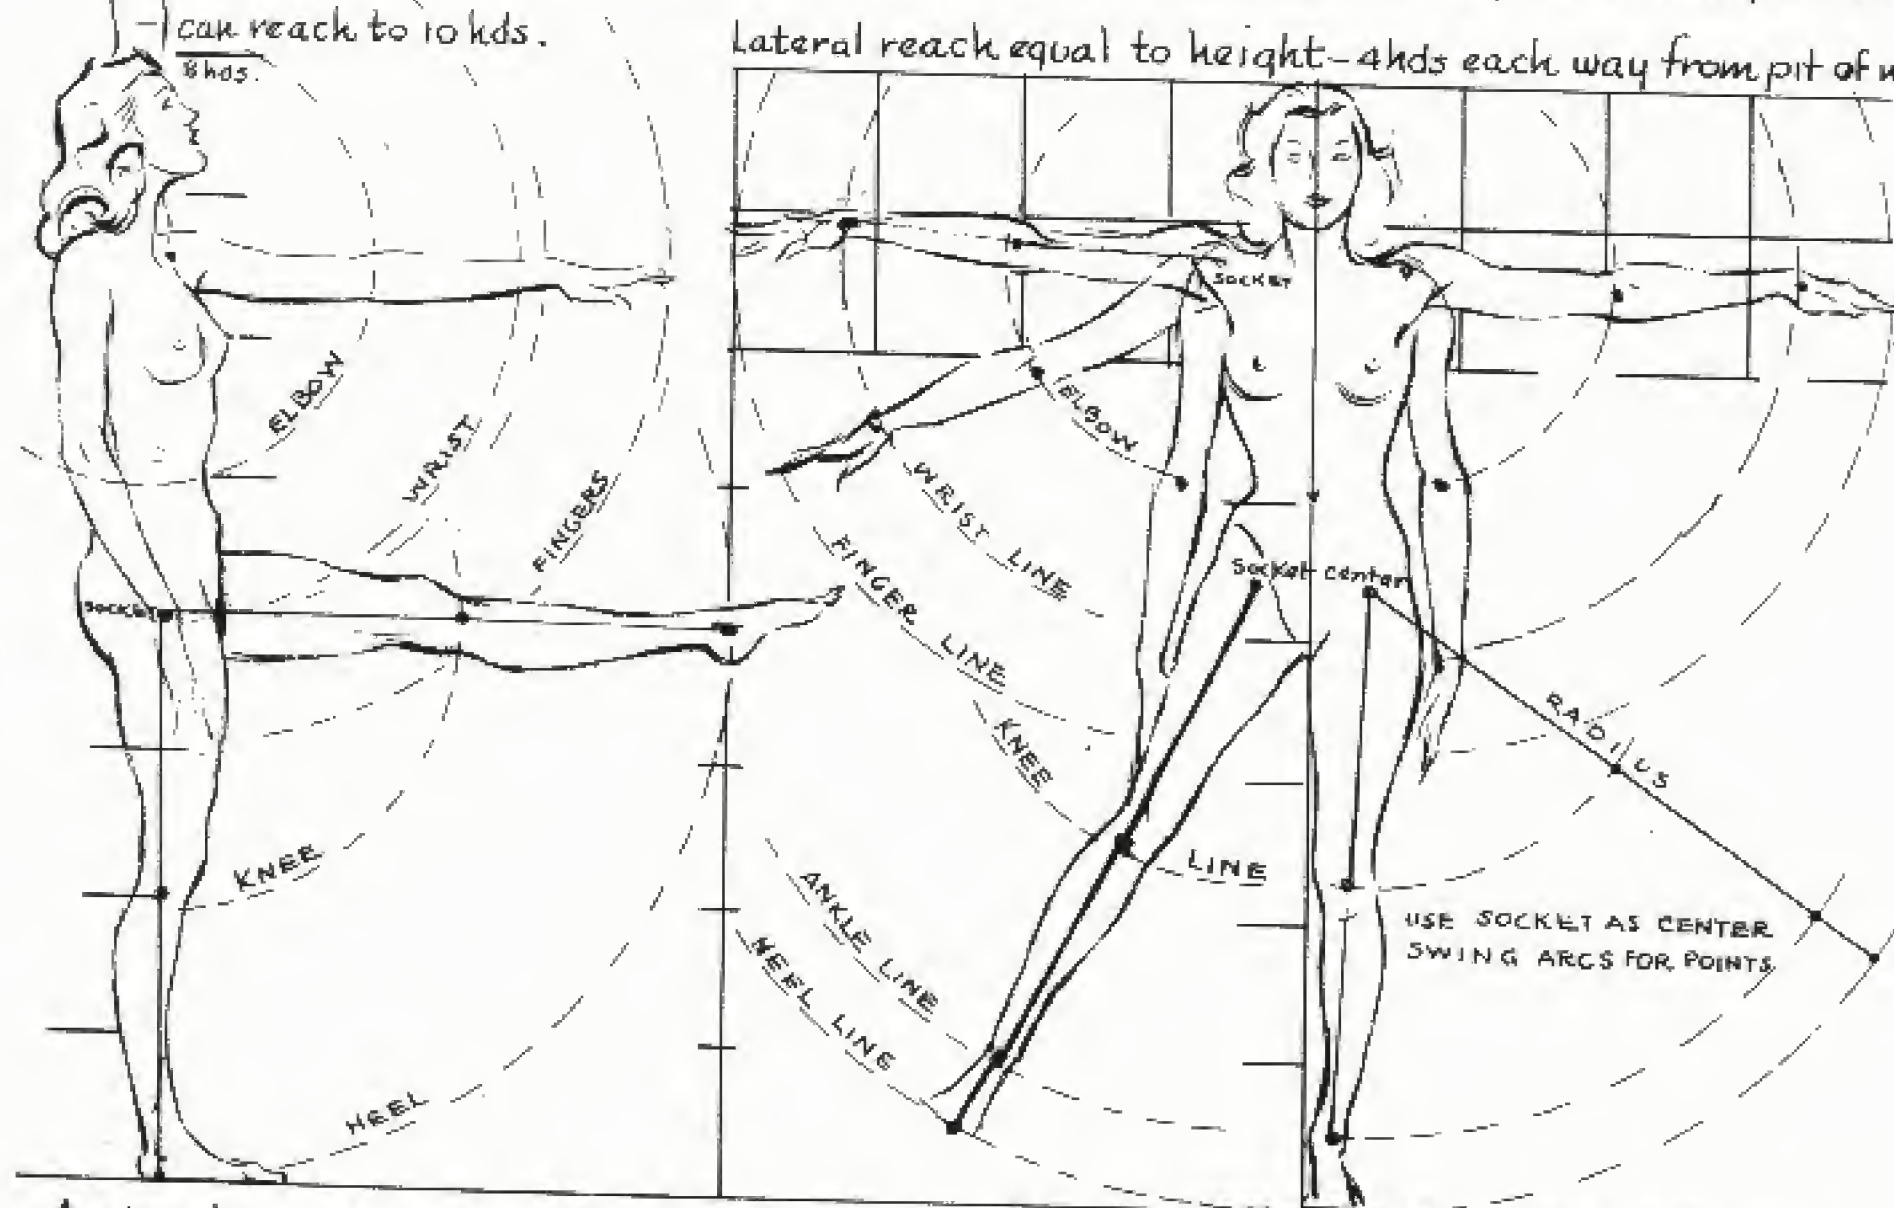 can reach to 10 hds.
8 hds.
Lateral reach equal to height - 4 hds each way from pit of
ELBOW
WRIST
FINGERS
SOCKET
KNEE
HEEL
SOCKET
ELBOW
WRIST LINE
FINGER LINE
KNEE LINE
ANKLE LINE
HEEL LINE
Socket center
RADIUS
USE SOCKET AS CENTER
SWING ARCS FOR POINTS